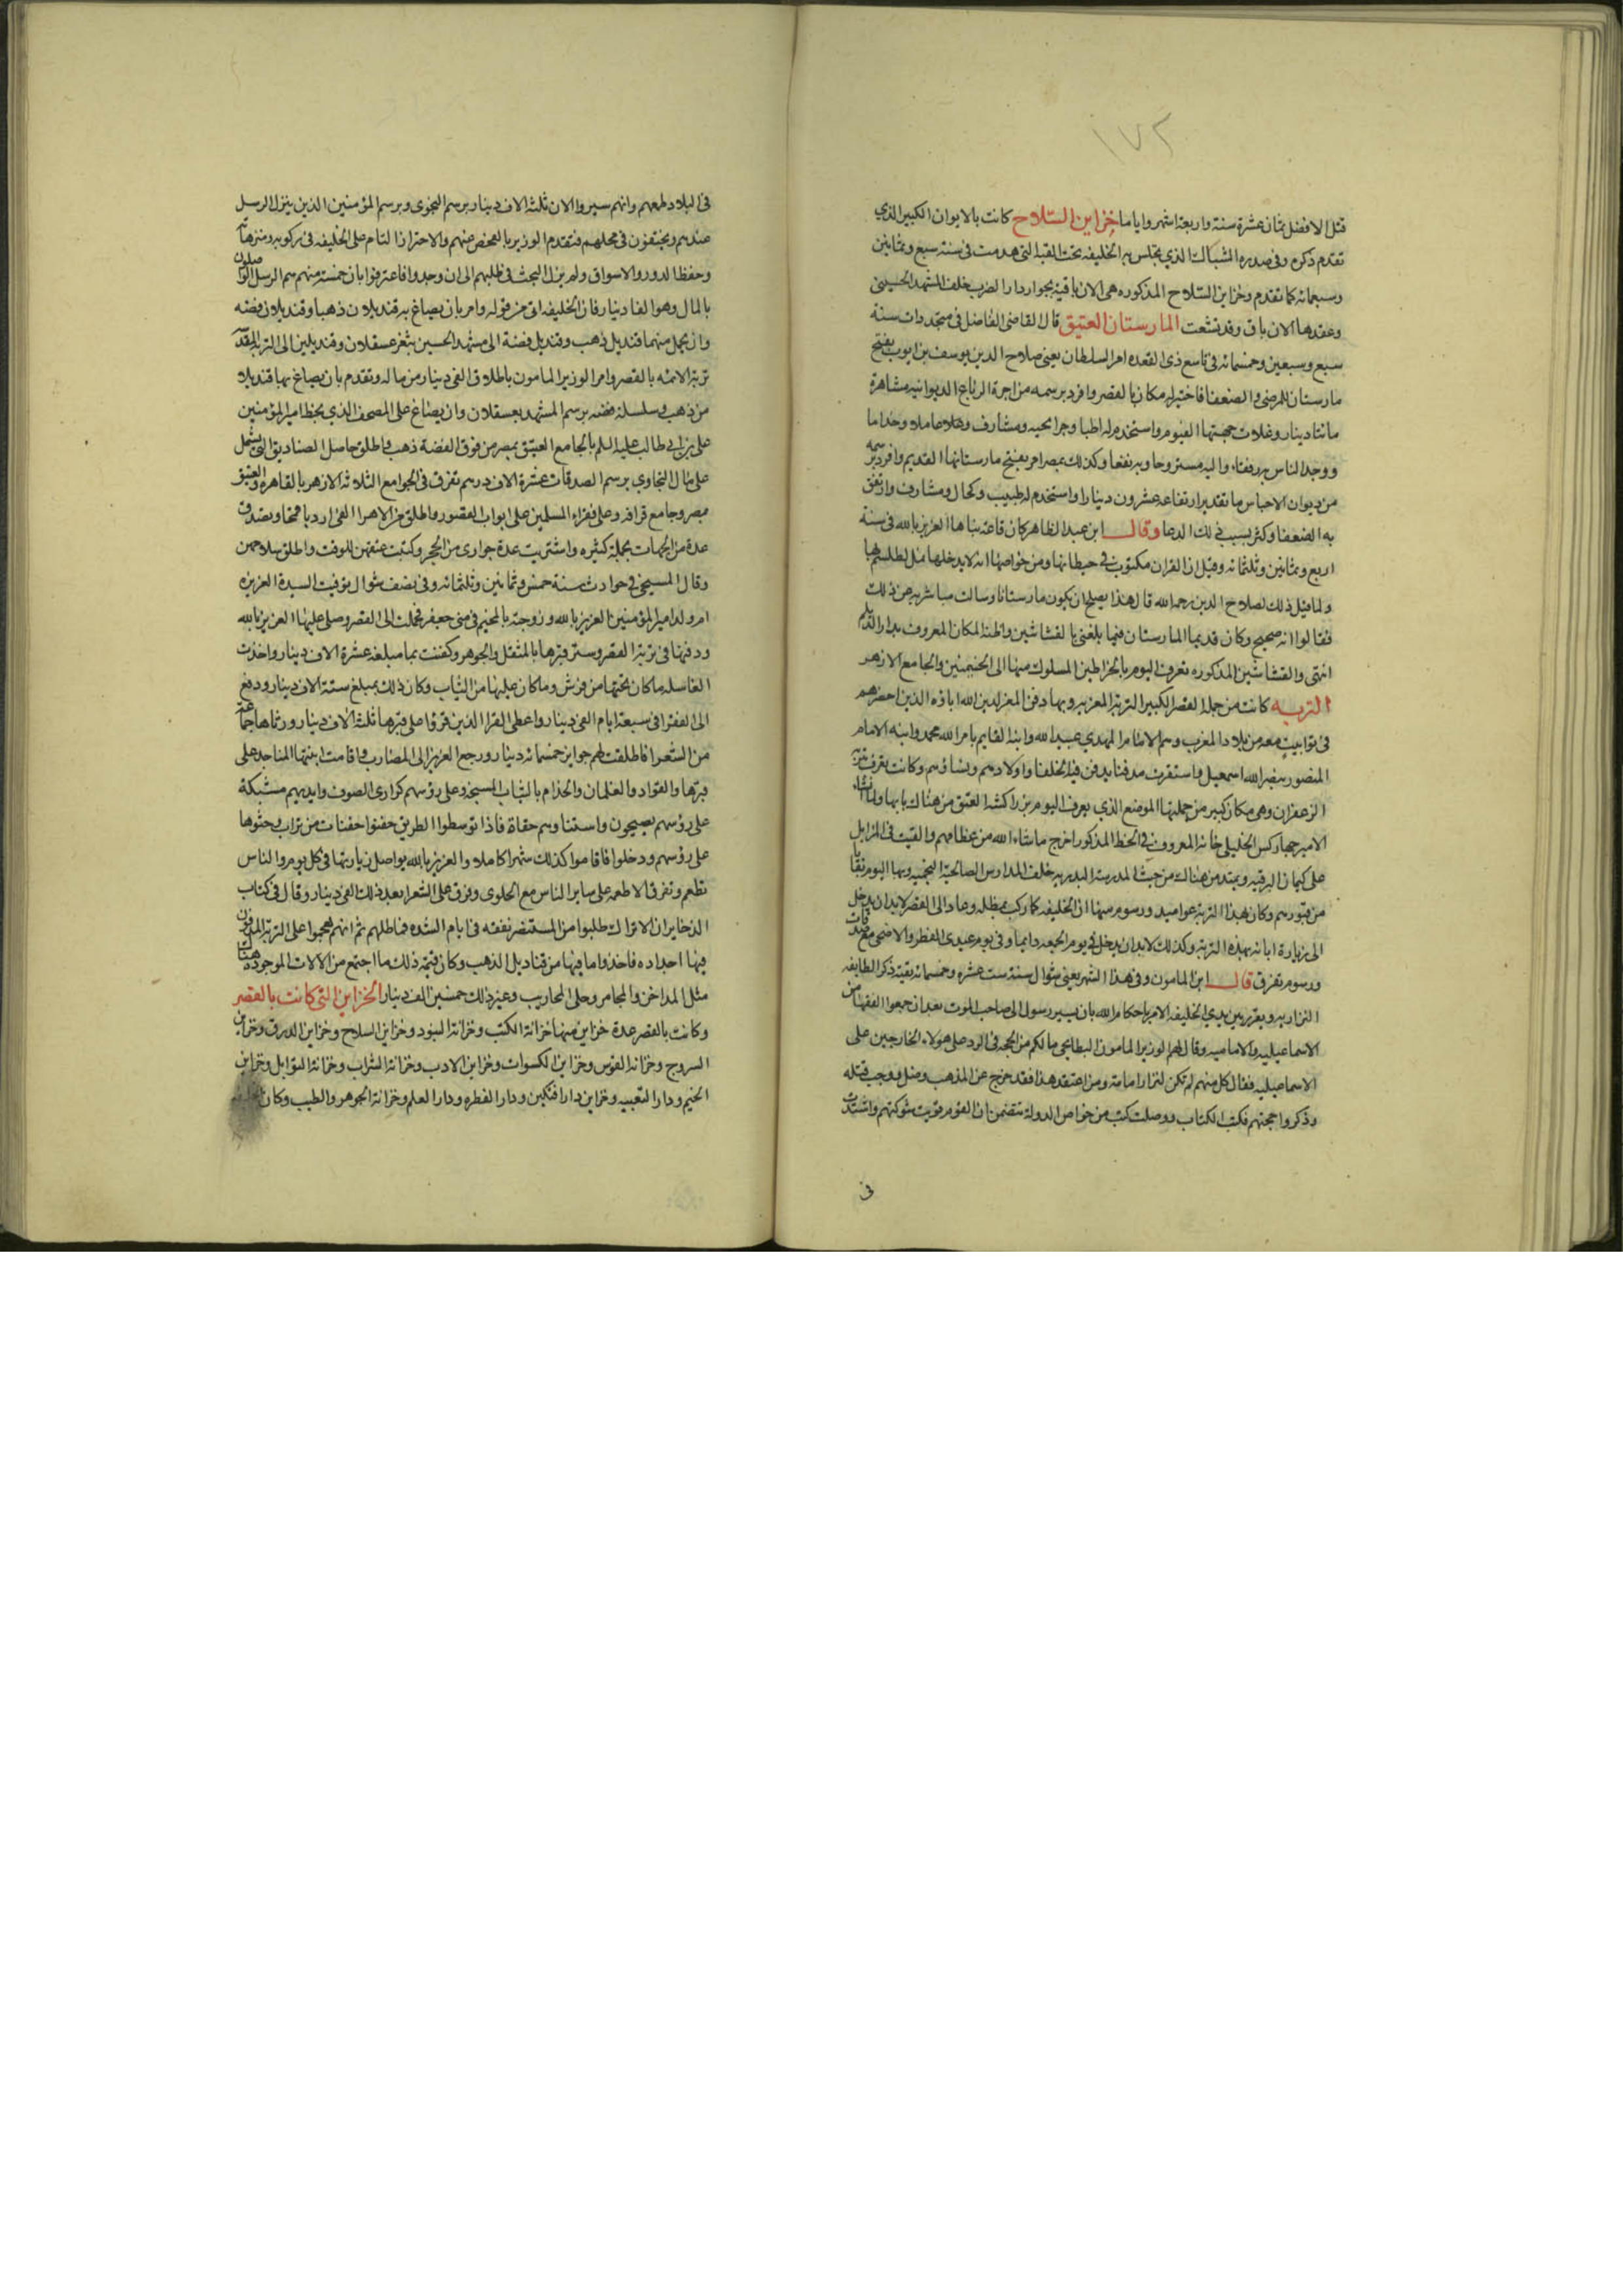 ١٧٢
قتل الافضل ثمان عشرة سنة واربعة اشهر واياما خزاين السلاح كانت بالايوان الكبير الذي
تقدم ذكره وفي صدره الشباك الذي يجلس به الخليفه تحت القبه التي هدمت في سنة سبع وثمانين
وسبعمائه كما تقدم وخزاين السلاح المذكوره هي الان باقيه بجوار دار الضرب خلف المشهد الحسيني
وعقدها الان باق وقد تشعث المارستان العتيق قال القاضي الفاضل في متجددات سنة
سبع وسبعين وخمسمائه في تاسع ذي القعده امر السلطان يعني صلاح الدين يوسف بن ايوب بفتح
مارستان للمرضى والضعفا فاختير له مكان بالقصر وافرد برسمه من اجرة الرباع الديوانيه مشاهرة
مائتا دينار وغلات جهتها الفيوم واستخدم له اطبا وجرائحيه ومشارف وعاملا وخداما
ووجد الناس به رفقا واليه مستروحا وبه نفعا وكذلك بمصر امر بفتح مارستانها القديم وافرد برسمه
من ديوان الاحباس ما تقدير ارتفاعه عشرون دينارا واستخدم له طبيب وكحال ومشارف وارتفق
به الضعفا وكثر بسبب ذلك الدعا وقال ابن عبد الظاهر كان قاعه بناها العزيز بالله في سنة
اربع وثمانين وثلثمائه وقيل ان القران مكتوب في حيطانها ومن خواصها انه لا يدخلها نمل لطلسم بها
ولما قيل ذلك لصلاح الدين رحمه الله قال هذا يصلح ان يكون مارستانا وسالت مباشريه عن ذلك
فقالوا انه صحيح وكان قديما المارستان فيما بلغني بالقشاشين واظنه المكان المعروف بدار الديلم
انتهى والقشاشين المذكوره تعرف اليوم بالخراطين المسلوك منها الى الخيميين والجامع الازهر
التربه كانت من جملة القصر الكبير التربه المعزيه وبها دفن المعز لدين الله اباؤه الذين احضرهم
في توابيت معه من بلاد المغرب وهم الامام المهدي عبيد الله وابنه القايم بامر الله محمد وابنه الامام
المنصور بنصر الله اسمعيل واستقرت مدفنا يدفن فيه الخلفا واولادهم ونساؤهم وكانت تعرف بتربة
الزعفران وهي مكان كبير من جملتها الموضع الذي يعرف اليوم بزراكشة العتق من هناك بابها ولما انشا
الامير جهاركس الخليلي خانه المعروف في الخط المذكور اخرج ما شاء الله من عظامهم والقيت في المزابل
على كيمان البرقيه ويمتد من هناك من حيث المدرسة البدريه خلف المدارس الصالحية النجميه وبها اليوم بقايا
من قبورهم وكان لهذه التربه عوايد ورسوم منها ان الخليفه كلما ركب بمظله وعاد الى القصر لابد ان يدخل
الى زيارة ابائه بهذه التربه وكذلك لابد ان يدخل في يوم الجمعه دايما وفي يوم عيدي الفطر والاضحى مع صدقات
ورسوم تفرق قال ابن المامون وفي هذا الشهر يعني شوال سنة ست عشره وخمسمائه بقية ذكر الطايفه
النزاريه وبتقرير بين يدي الخليفه الامر باحكام الله بان يسير رسول الى صاحب الموت بعد ان جمعوا الفقها من
الاسماعيليه والاماميه وقال لهم الوزير المامون البطايحي ما لكم من الحجه في الرد على هولاء الخارجين على
الاسماعيليه فقال كل منهم لم تكن لنزار امامة ومن اعتقد هذا فقد خرج عن المذهب وضل ووجب قتله
وذكروا حجتهم فكتب الكتاب ووصلت كتب من خواص الدوله تتضمن ان القوم قويت شوكتهم واشتدت
في
في البلاد طمعهم وانهم سيروا الان ثلثة الاف دينار برسم النجوى وبرسم المؤمنين الذين ينزل الرسل
عندهم ويختفون في محلهم فتقدم الوزير بالفحص عنهم والاحتراز التام على الخليفه في ركوبه ومتنزهاته
وحفظ الدور والاسواق ولم يزل البحث في طلبهم الى ان وجدوا فاعترفوا بان خمسة منهم هم الرسل الواصلون
بالمال وهو الفا دينار فان الخليفه اتى من قوله وامر بان يصاغ به قنديلان ذهبا وقنديلان فضه
وان يحمل منهما قنديل ذهب وقنديل فضة الى مشهد الحسين بثغر عسقلان وقنديلين الى التربه المقدسه
تربة الائمه بالقصر وامر الوزير المامون باطلاق الفي دينار من ماله وتقدم بان يصاغ بها قنديلا
من ذهب وسلسلة فضه برسم المشهد بعسقلان وان يصاغ على المصحف الذي بخط امير المؤمنين
علي بن ابي طالب عليه السلم بالجامع العتيق بمصر من فوق الفضة ذهب واطلق حاصل الصناديق التي تشتمل
على مال النجاوي برسم الصدقات عشرة الاف درهم تفرق في الجوامع الثلاثه الازهر بالقاهره والعتيق
بمصر وجامع قرافه وعلى فقراء المسلمين على ابواب القصور واطلق من الاهرا الفي اردبا قمحا وتصدق
عدة من الجهات بجملة كثيره واشتريت عدة جواري من الحجر وكتبت عتقهن للوقت واطلق سراحهن
وقال المسبحي في حوادث سنة خمس وثمانين وثلثمائه وفي نصف شوال توفيت السيدة العزيزه
ام ولد امير المؤمنين العزيز بالله وزوجته بالمخيم في منى جعفر فحملت الى القصر وصلى عليها العزيز بالله
ودفنها في تربة القصر وستر قبرها بالمثقل والجوهر وكفنت بما مبلغه عشرة الاف دينار واخذت
الغاسله ما كان تحتها من فرش وما كان عليها من الثياب وكان ذلك بمبلغ ستة الاف دينار ودفع
الى الفقرا في سبعة ايام الفي دينار واعطى القرا الذين قروا على قبرها ثلثة الاف دينار ورثاها جماعة
من الشعرا فاطلقت لهم جوايز خمسمائه دينار ورجع العزيز الى المضارب واقامت ابنتها المناحه على
قبرها والقواد والغلمان والخدام بالثياب وعلى رؤسهم كرازي الصوف وايديهم مشبكة
على رؤسهم يصيحون واستنا وهم حفاة فاذا توسطوا الطريق حفنوا حفنات من تراب وحثوها
على رؤسهم ودخلوا فاقاموا كذلك شهرا كاملا والعزيز بالله يواصل زيارتها في كل يوم والناس
تطعم وتفرق الاطعمه على ساير الناس مع الحلوى وفرق على الشعرا بعد ذلك الفي دينار وقال في كتاب
الذخاير ان الاتراك طلبوا من المستنصر نفقه في ايام الشده فماطلهم ثم انهم هجموا على التربه المدفون
فيها اجداده فاخذوا ما فيها من قناديل الذهب وكان قيمة ذلك ما اجتمع من الالات الموجوده هناك
مثل المداخن والمجامر وحلى المحاريب وغير ذلك خمسين الف دينار الخزاين التي كانت بالقصر
وكانت بالقصر عدة خزاين منها خزانة الكتب وخزانة البنود وخزاين السلاح وخزاين الدرق وخزاين
السروج وخزانه الفرش وخزاين الكسوات وخزاين الادب وخزانة الشراب وخزانة التوابل وخزاين
الخيم ودار التعبيه وخزاين دار افتكين ودار الفطره ودار العلم وخزانة الجوهر والطيب وكان